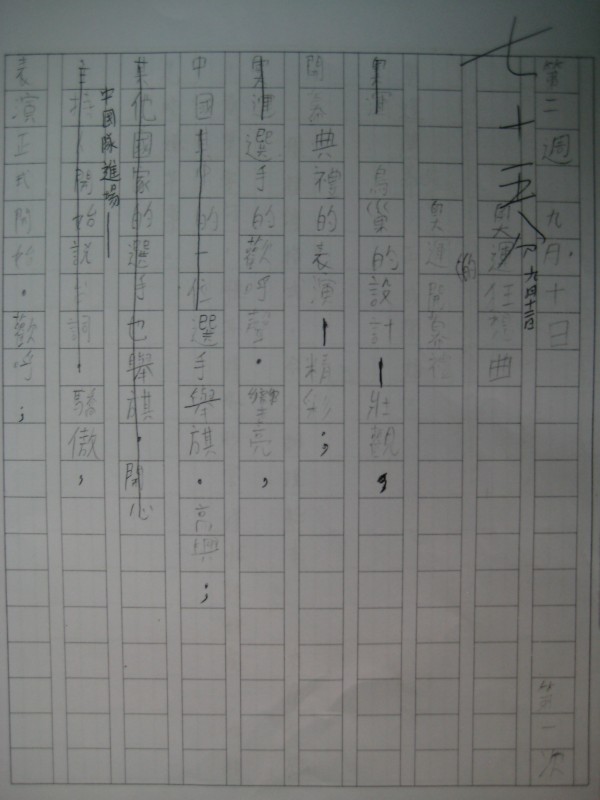 第二週 九月十日 第一次
七十五
奧運任想曲
奧運開幕禮
鳥巢的設計 壯觀，
開幕典禮的表演 精彩；
奧運選手的歡呼聲．響亮，
中国 的一位選手舉旗．高興；
其他國家的選手也舉旗．開心
中国隊進場
主持人開始說台詞．驕傲，
表演正式開始．歡呼；